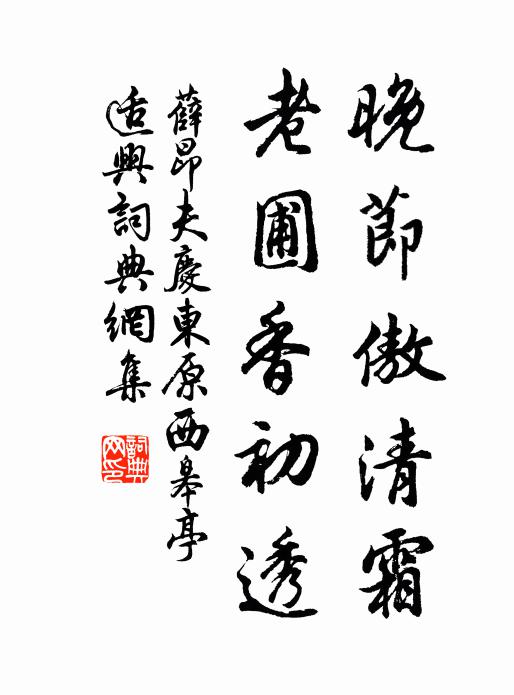 晚節傲清霜
老圃香初透
薛昂夫慶東原西皋亭
适興詞典網集
詞典
网印